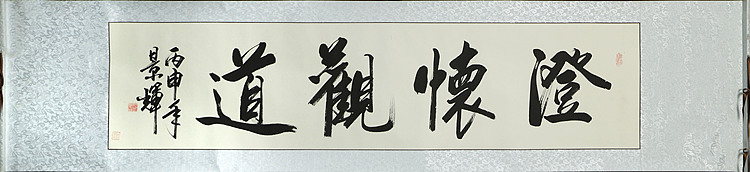 澄懷觀道
丙申年
景輝